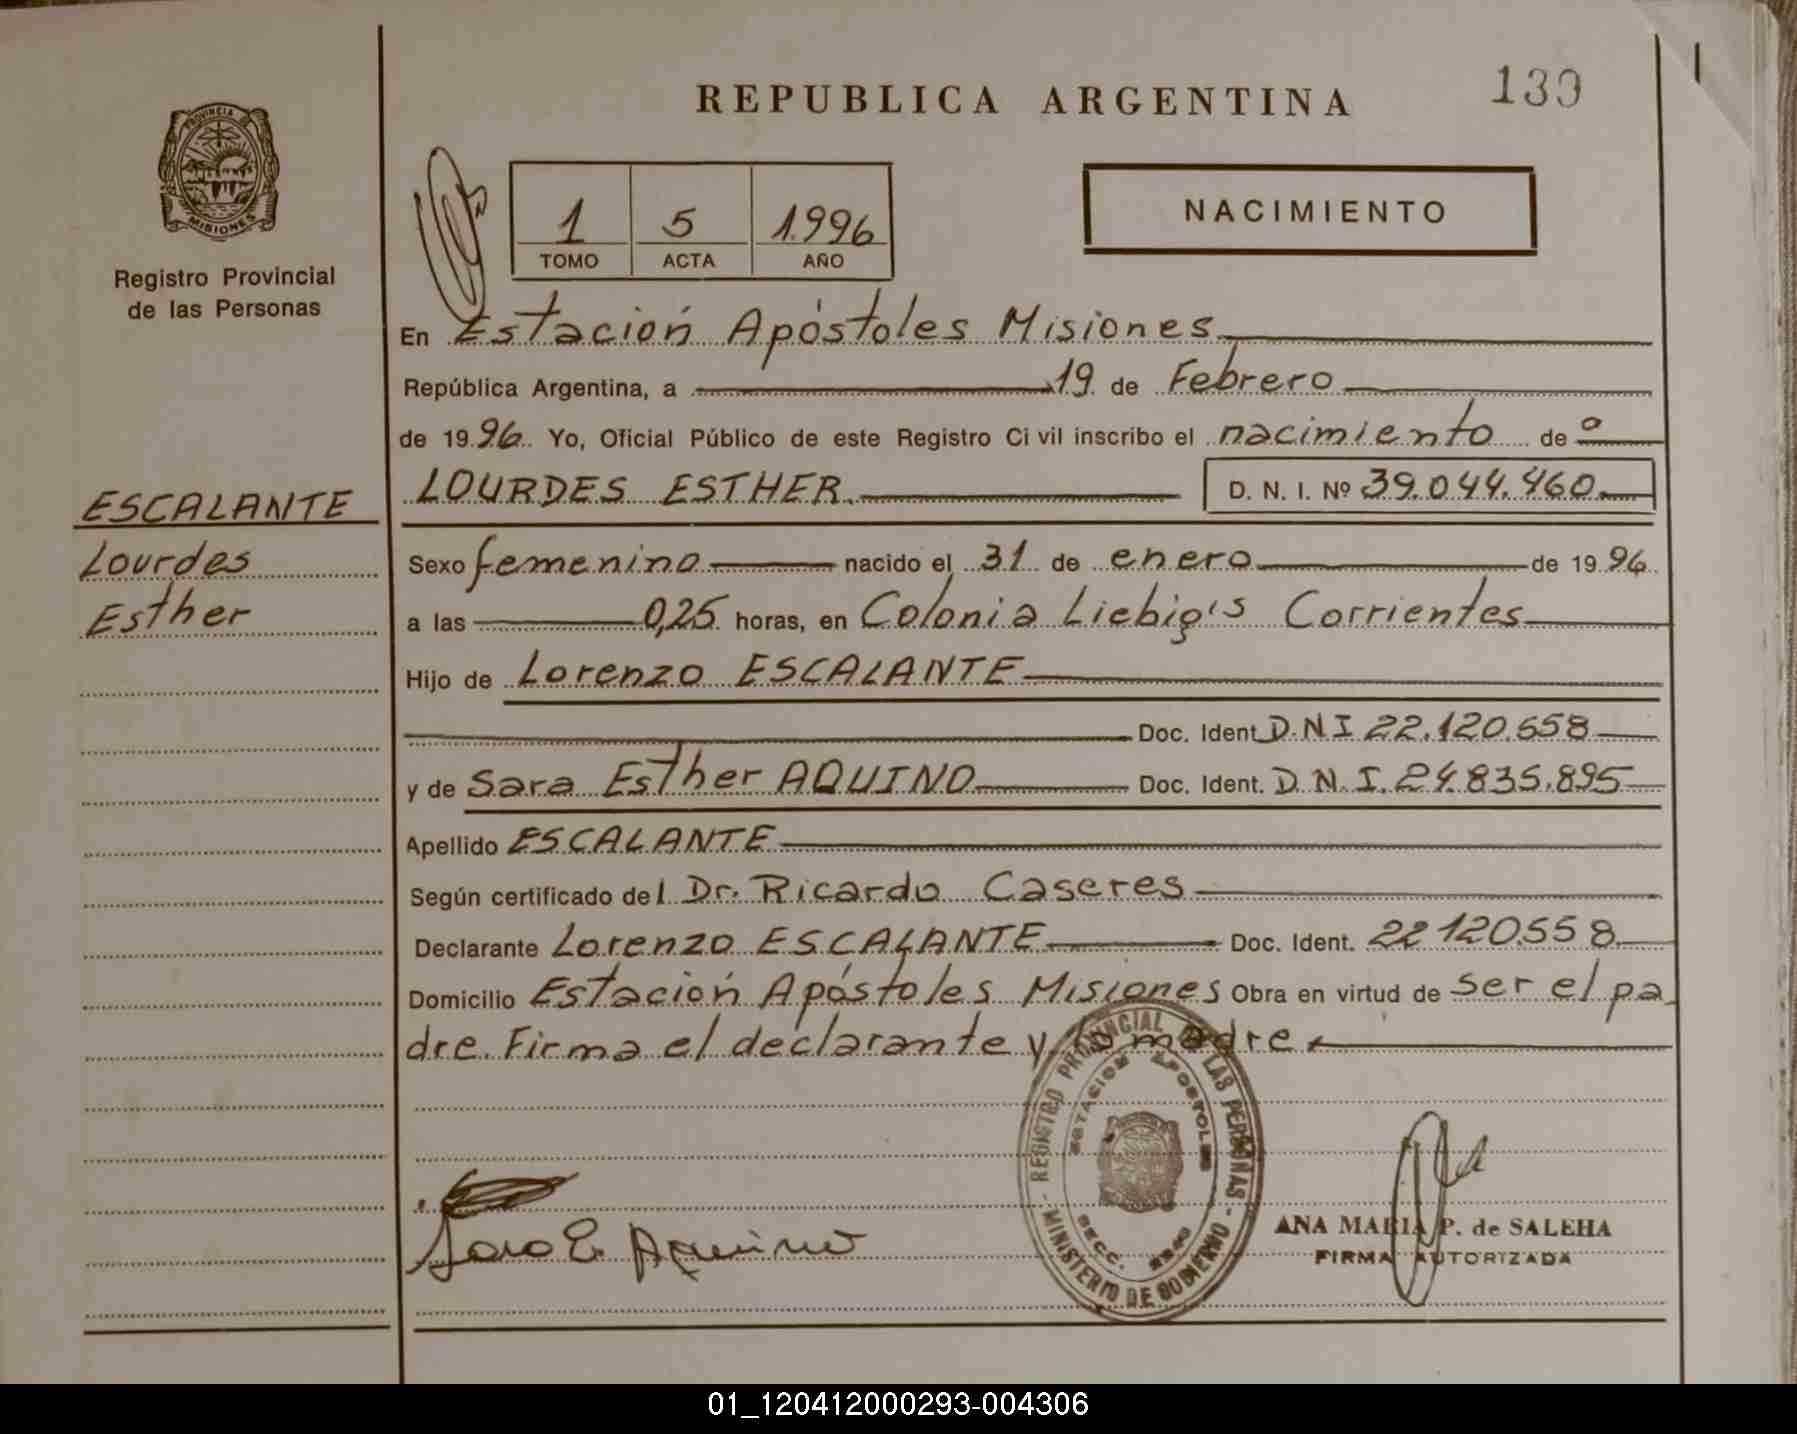 REPUBLICA ARGENTINA
139
PROVINCIA DE
MISIONES
Registro Provincial
de las Personas
1 5 1.996
TOMO ACTA AÑO
NACIMIENTO
En Estación Apóstoles Misiones
República Argentina, a 19 de Febrero
de 19 96 Yo, Oficial Público de este Registro Civil inscribo el nacimiento de
LOURDES ESTHER D. N. I. Nº 39.044.460
ESCALANTE
Lourdes
Esther
Sexo femenino nacido el 31 de enero de 19 96
a las 0,25 horas, en Colonia Liebig's Corrientes
Hijo de Lorenzo ESCALANTE
Doc. Ident D.N.I 22.120.558
y de Sara Esther AQUINO Doc. Ident. D.N.I. 24.835.895
Apellido ESCALANTE
Según certificado del Dr. Ricardo Caseres
Declarante Lorenzo ESCALANTE Doc. Ident. 22120.558
Domicilio Estación Apóstoles Misiones Obra en virtud de ser el pa
dre. Firma el declarante y la madre
REGISTRO PROVINCIAL DE LAS PERSONAS
ESTACION APOSTOLES
SECC.
MINISTERIO DE GOBIERNO
Sara E. Aquino
ANA MARIA P. de SALEHA
FIRMA AUTORIZADA
01_120412000293-004306